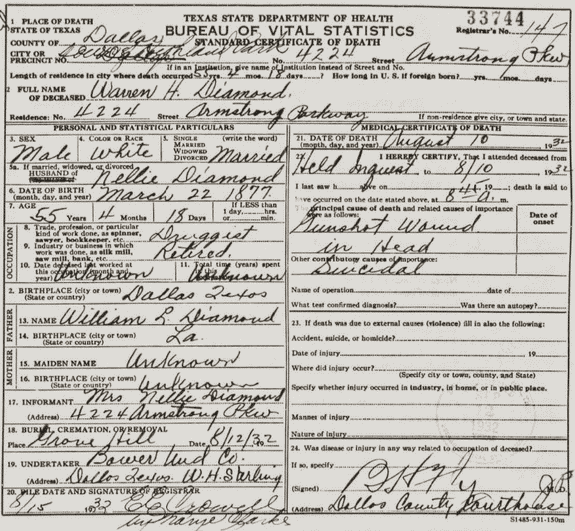 TEXAS STATE DEPARTMENT OF HEALTH
BUREAU OF VITAL STATISTICS
STANDARD CERTIFICATE OF DEATH
33744
Registrar's No. 147
1 PLACE OF DEATH
STATE OF TEXAS
COUNTY OF Dallas
CITY OR
PRECINCT NO. 4224 Street Armstrong Pkw
If in an Institution, give name of Institution instead of Street and No.
Length of residence in city where death occurred 55 yrs. 4 mos. 18 days. How long in U. S. if foreign born? yrs. mos. days.
2 FULL NAME
OF DECEASED Warren H. Diamond.
Residence: No. 4224 Street Armstrong Parkway
If non-residence give city, or town and state
PERSONAL AND STATISTICAL PARTICULARS
3. SEX 4. COLOR OR RACE 5. SINGLE MARRIED WIDOWED DIVORCED (write the word)
Male White Married
5a. If married, widowed, or divorced
HUSBAND of Nellie Diamond
6. DATE OF BIRTH
(month, day, and year) March 22 1877
7. AGE If LESS than
1 day, hrs.
min.
55 Years 4 Months 18 Days
OCCUPATION
8. Trade, profession, or particular
kind of work done, as spinner,
sawyer, bookkeeper, etc. Druggist
9. Industry or business in which
work was done, as silk mill,
saw mill, bank, etc. Retired.
10. Date deceased last worked at
this occupation (month and
year) Unknown
11. Total time (years) spent
Unknown
2. BIRTHPLACE (city or town)
(State or country) Dallas Texas
FATHER
13. NAME William L. Diamond
14. BIRTHPLACE (city or town)
(State or country) La.
MOTHER
15. MAIDEN NAME Unknown
16. BIRTHPLACE (city or town)
(State or country) Unknown
17. INFORMANT Mrs Nellie Diamond
(Address) 4224 Armstrong Pkw
18. BURIAL, CREMATION, OR REMOVAL
Place Grove Hill Date 8/12/32
19. UNDERTAKER Bower Und Co.
(Address) Dallas Texas W.H. Starling
20. FILE DATE AND SIGNATURE OF REGISTRAR
8/15 1932
MEDICAL CERTIFICATE OF DEATH
21. DATE OF DEATH
(month, day, and year) August 10 1932
22. I HEREBY CERTIFY, That I attended deceased from
Held Inquest to 8/10 1932
I last saw h alive on 19 , death is said to
have occurred on the date stated above, at m.
The principal cause of death and related causes of importance
were as follows: Date of
onset
Gunshot Wound
in Head
Other contributory causes of importance:
Suicidal
Name of operation date of
What test confirmed diagnosis? Was there an autopsy?
23. If death was due to external causes (violence) fill in also the following:
Accident, suicide, or homicide?
Date of injury 19
Where did injury occur?
(Specify city or town, county, and State)
Specify whether injury occurred in industry, in home, or in public place.
Manner of injury
Nature of injury
24. Was disease or injury in any way related to occupation of deceased?
If so, specify
(Signed)
(Address) Dallas County Courthouse
S1485-931-150m